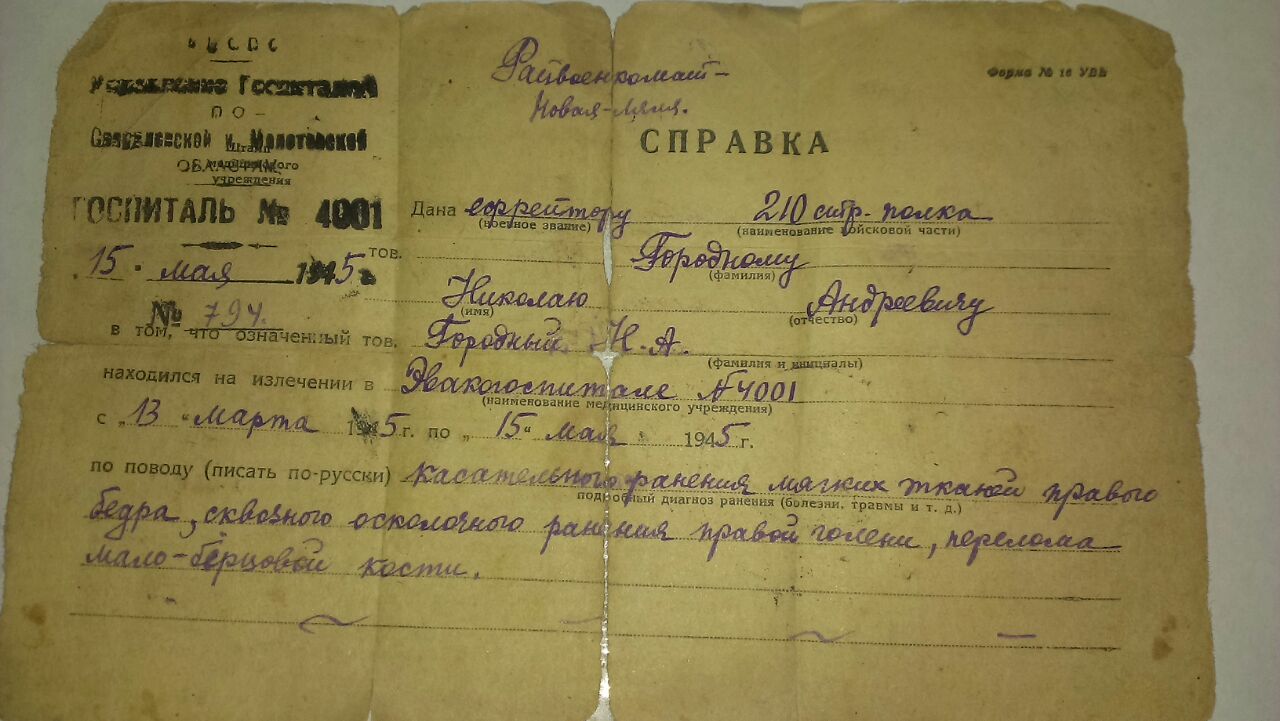 Управление Госпиталей
ПО
Свердловской и Молотовской
ОБЛАСТЯМ
Штамп
медицинского
учреждения
ГОСПИТАЛЬ № 4001
15 мая 1945 г.
№ 794.
Райвоенкомат-
Новая-Ляля.
Форма № 16 УВБ
СПРАВКА
Дана ефрейтору 210 стр. полка
(военное звание) (наименование войсковой части)
тов. Городному
(фамилия)
Николаю Андреевичу
(имя) (отчество)
в том, что означенный тов. Городный Н.А.
(фамилия и инициалы)
находился на излечении в Эвакогоспитале №4001
(наименование медицинского учреждения)
с „13" марта 1945 г. по „15" мая 1945 г.
по поводу (писать по-русски) касательного ранения мягких тканей правого
подробный диагноз ранения (болезни, травмы и т. д.)
бедра, сквозного осколочного ранения правой голени, перелома
мало-берцовой кости.